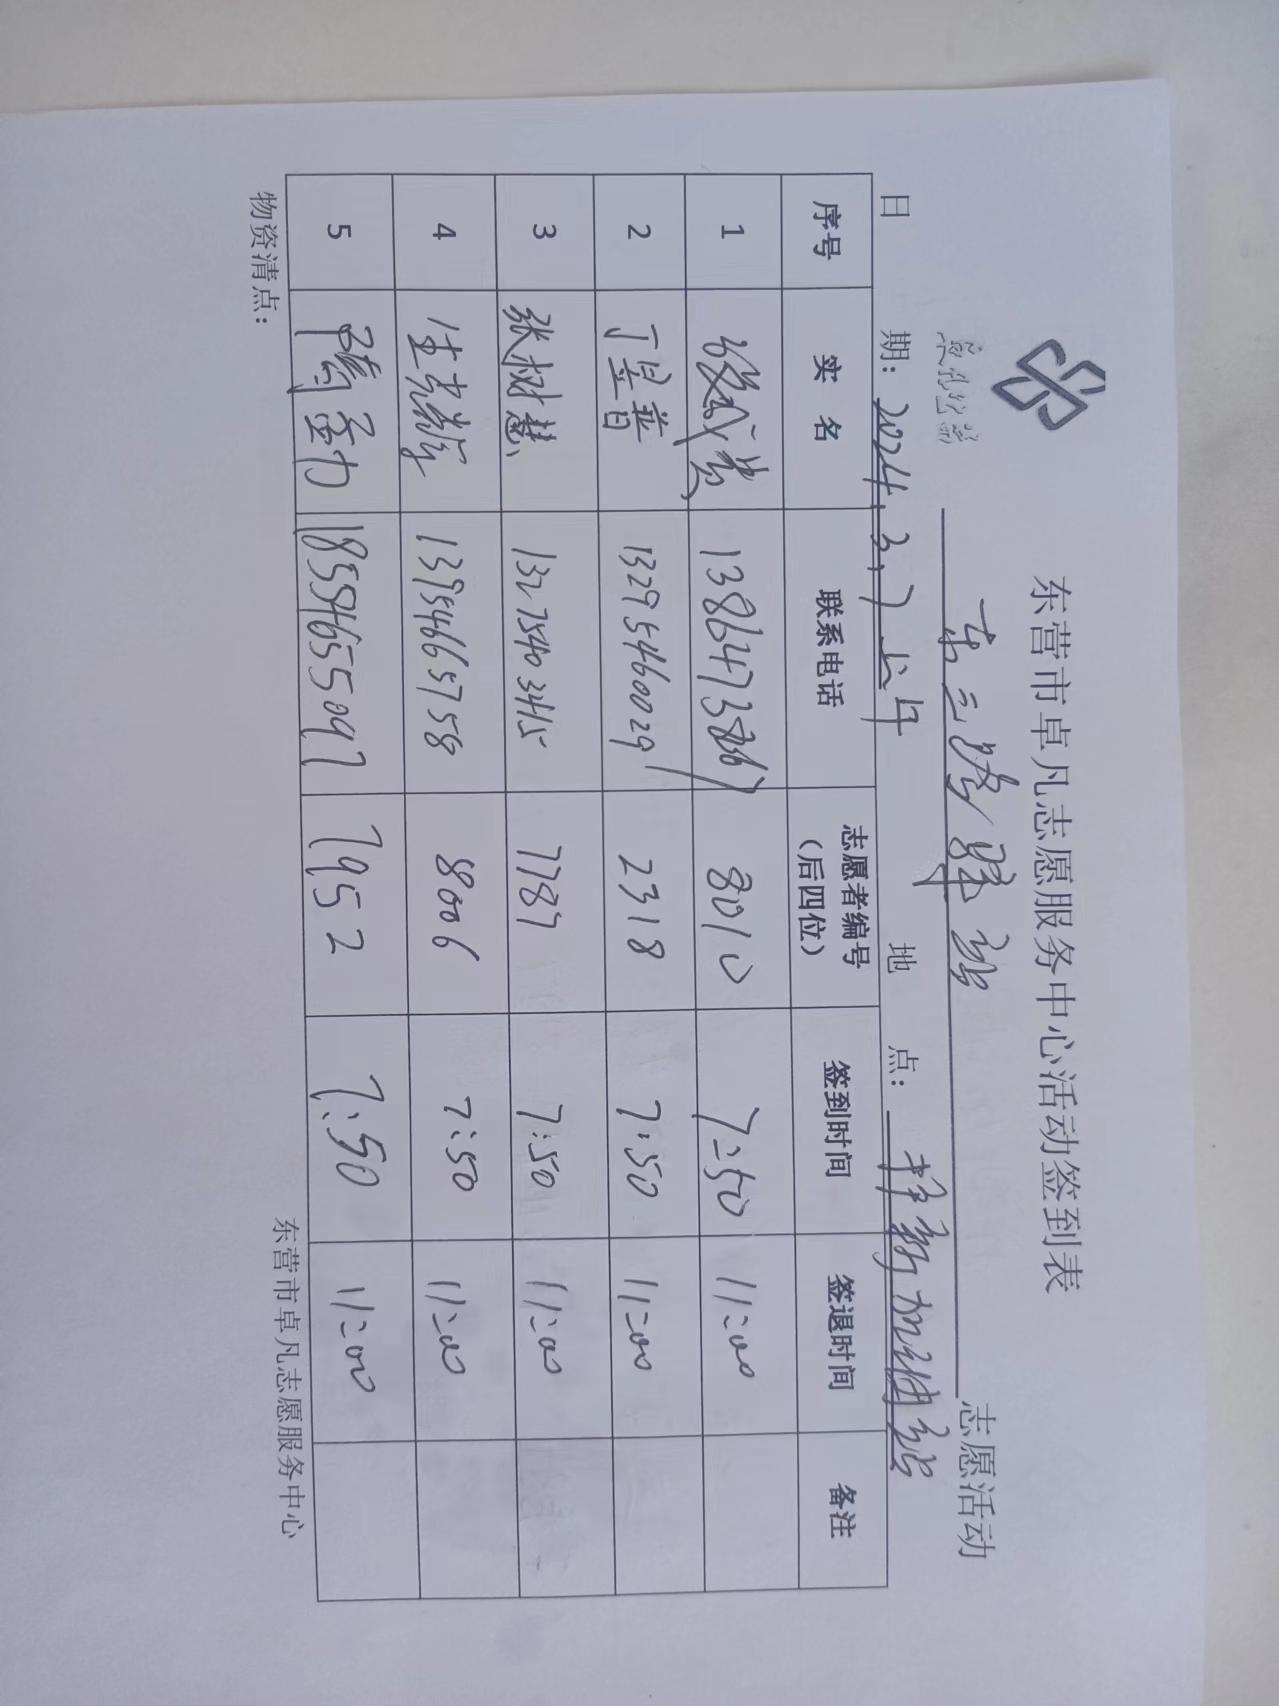 卓凡公益
东营市卓凡志愿服务中心活动签到表
东三路驿站 志愿活动
日 期: 2024.3.7 上午 地 点: 加油站
序号 实 名 联系电话 志愿者编号(后四位) 签到时间 签退时间 备注
1 8010 7:50 11:00
2 丁昱普 13295460029 2318 7:50 11:00
3 张树慧 13275403415 7787 7:50 11:00
4 13954665758 8006 7:50 11:00
5 18554655097 7952 7:50 11:00
物资清点:
东营市卓凡志愿服务中心